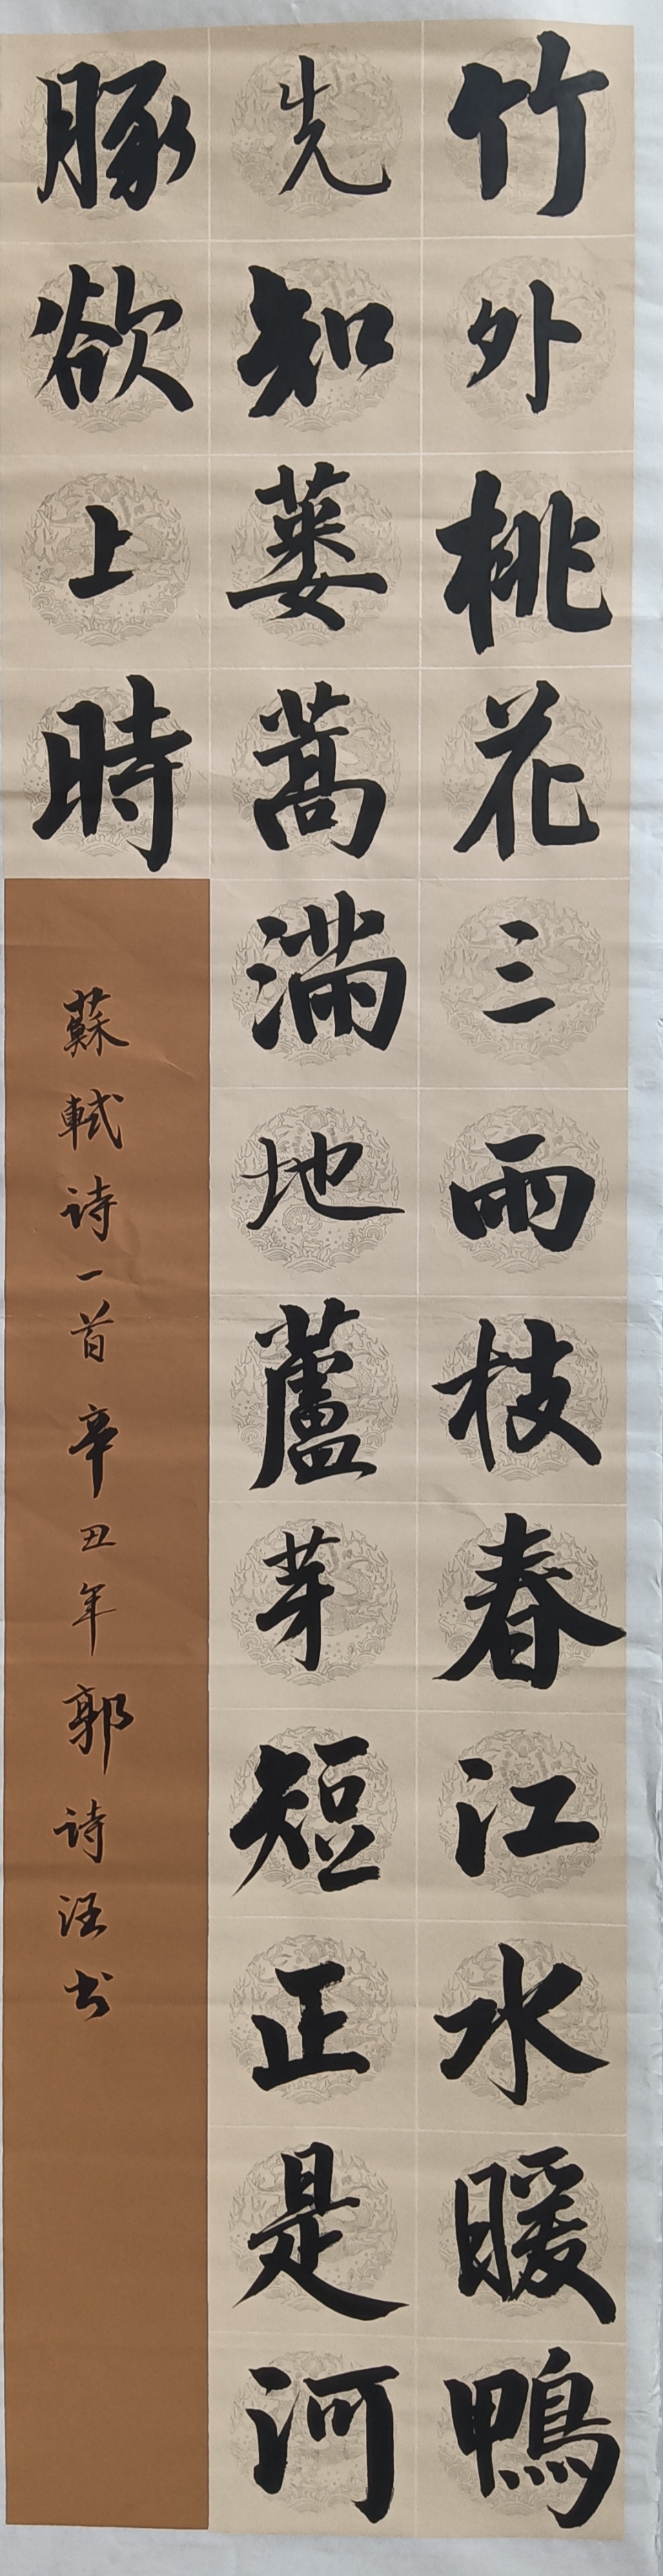 竹外桃花三雨枝春江水暖鴨
先知蒌蒿满地蘆芽短正是河
豚欲上時
蘇軾诗一首辛丑年郭诗汪书